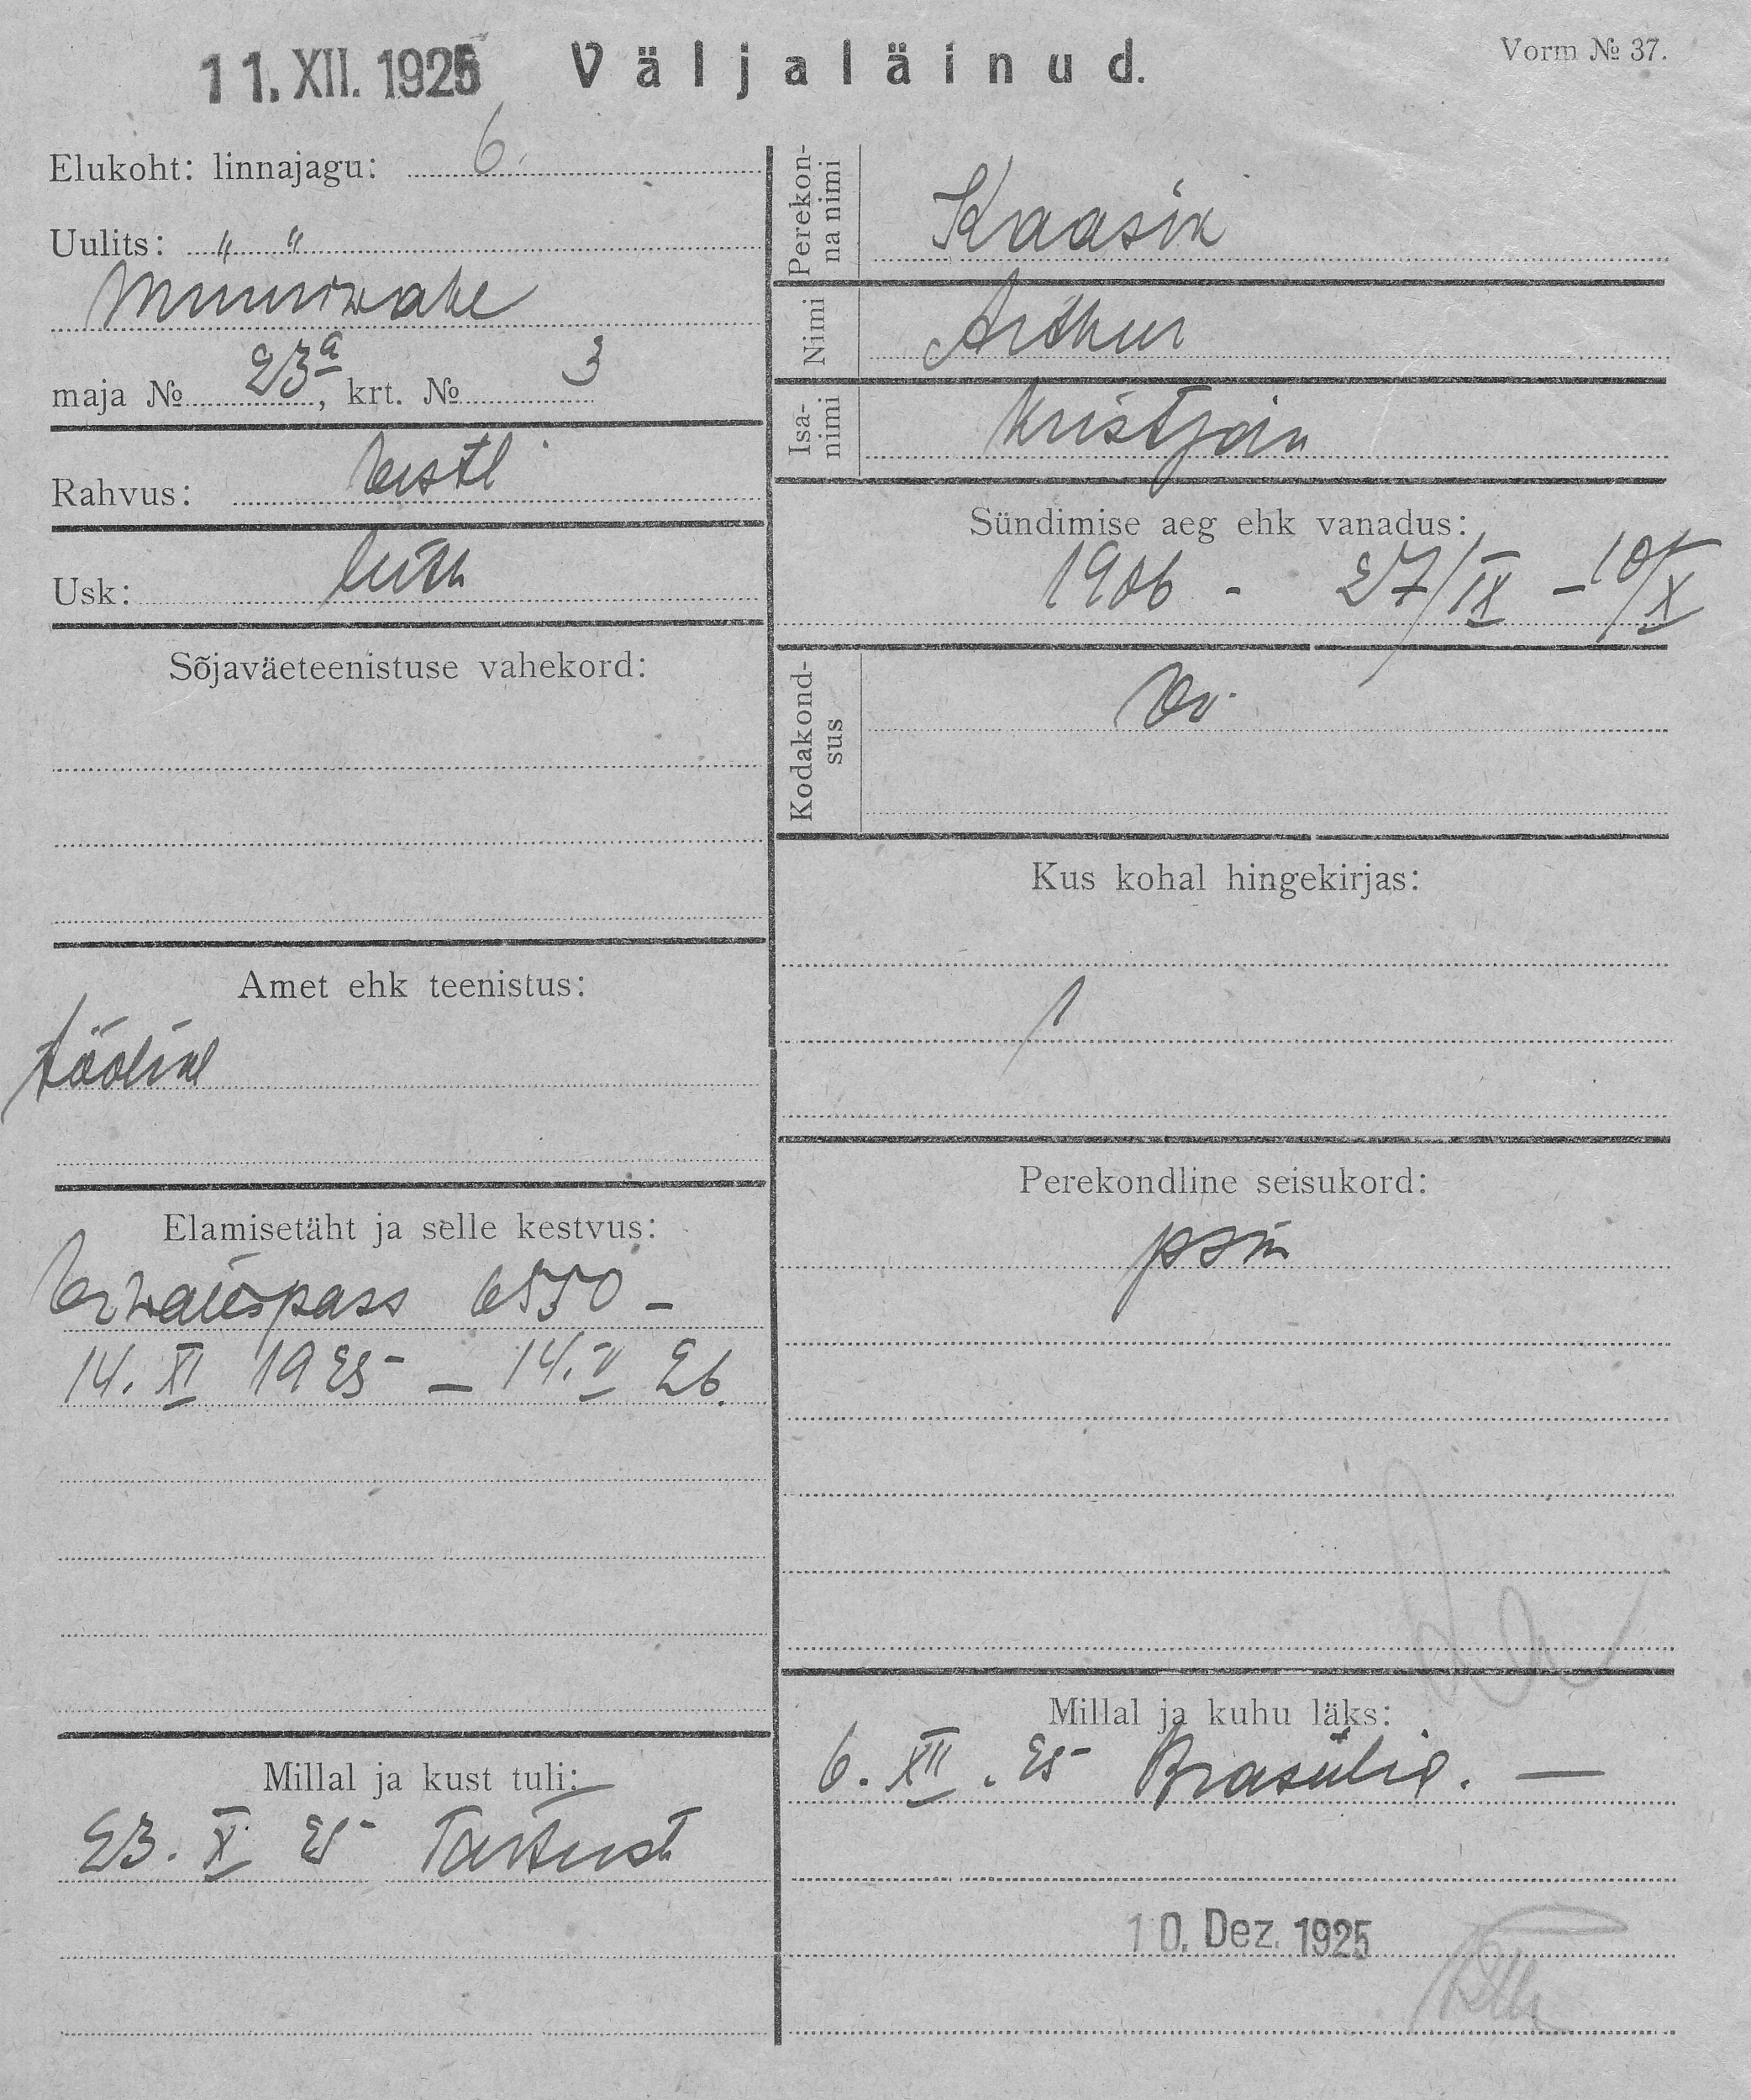 11. XII. 1925 Väljaläinud. Vorm № 37.
Elukoht: linnajagu: 6.
Uulits: " "
Müüriwahe
maja № 23a, krt. № 3
Rahvus: Eesti
Usk: luth
Sõjaväeteenistuse vahekord:
Amet ehk teenistus:
tööline
Elamisetäht ja selle kestvus:
Erwalispass 6550 -
14. XI 1925 - 14. V 26.
Millal ja kust tuli:
23. X 25 Tartust
Perekonna nimi Kaasik
Nimi Arthur
Isanimi Kristjan
Sündimise aeg ehk vanadus:
1906 - 27/IX - 10/X
Kodakondsus Ev.
Kus kohal hingekirjas:
Perekondline seisukord:
Millal ja kuhu läks:
6. XII. 25 Brasiilia. -
10. Dez. 1925